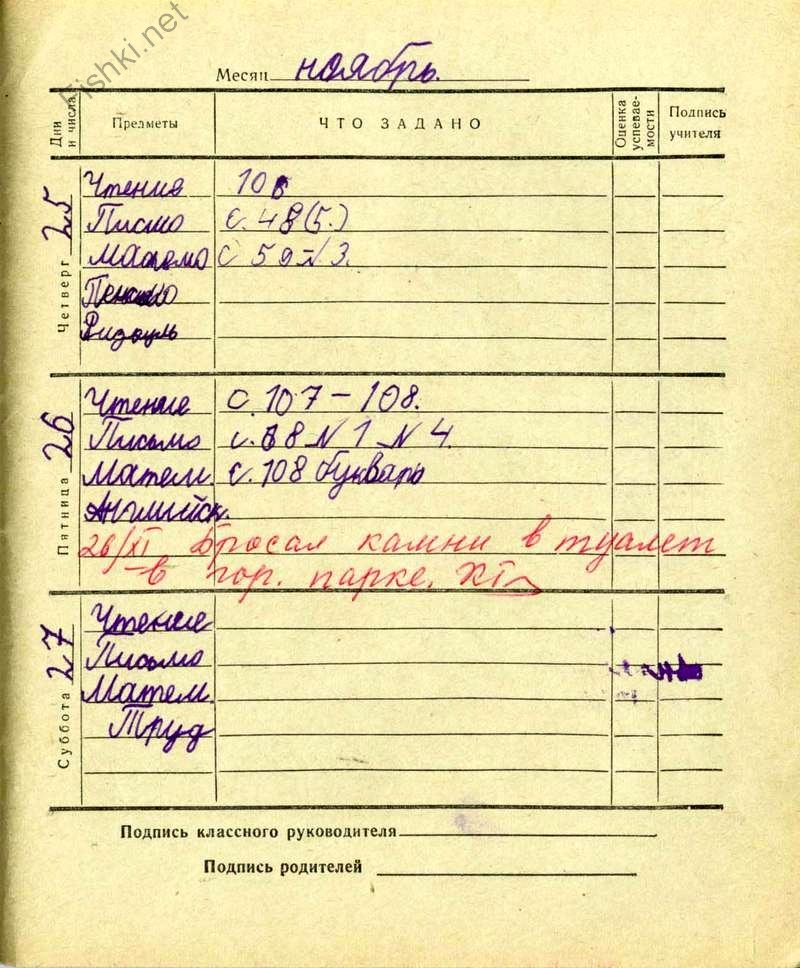 Fishki.net
Месяц ноябрь.
Дни и числа Предметы ЧТО ЗАДАНО Оценка успеваемости Подпись учителя
Четверг 25
Чтение 106
Писмо с. 48 (5.)
Матема с 59 №3.
Пение
Физкуль
Пятница 26
Чтение с. 107 – 108.
Письмо с. 68 №1 №4
Матем. с. 108 букварь
Английск.
26/XI Бросал камни в туалет
в гор. парке.
Суббота 27
Чтение
Письмо
Матем.
Труд
Подпись классного руководителя
Подпись родителей